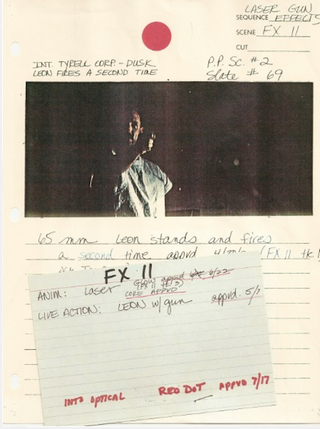 LASER GUN
SEQUENCE EFFECTS
SCENE FX 11
CUT
INT. TYRELL CORP. - DUSK
LEON FIRES A SECOND TIME
P.P. SC. # 2
Slate # 69
65 mm Leon stands and fires
a second time apprvd (FX 11
FX 11
ANIM: Laser apprvd 4/22
LIVE ACTION: LEON w/gun apprvd. 5/7
INTO OPTICAL RED DOT APPVD 7/17